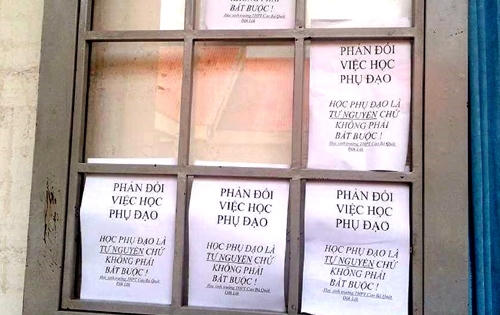 KHÔNG PHẢI
BẮT BUỘC !
Học sinh trường THPT Cao Bá Quát
Đắk Lắk
PHẢN ĐỐI
VIỆC HỌC
PHỤ ĐẠO
HỌC PHỤ ĐẠO LÀ
TỰ NGUYỆN CHỨ
KHÔNG PHẢI
BẮT BUỘC !
Học sinh trường THPT Cao Bá Quát
Đắk Lắk
PHẢN ĐỐI
VIỆC HỌC
PHỤ ĐẠO
HỌC PHỤ ĐẠO LÀ
TỰ NGUYỆN CHỨ
KHÔNG PHẢI
BẮT BUỘC !
Học sinh trường THPT Cao Bá Quát
Đắk Lắk
PHẢN ĐỐI
VIỆC HỌC
PHỤ ĐẠO
HỌC PHỤ ĐẠO LÀ
TỰ NGUYỆN CHỨ
KHÔNG PHẢI
BẮT BUỘC !
Học sinh trường THPT Cao Bá Quát
Đắk Lắk
PHẢN ĐỐI
VIỆC HỌC
PHỤ ĐẠO
HỌC PHỤ ĐẠO LÀ
TỰ NGUYỆN CHỨ
KHÔNG PHẢI
BẮT BUỘC !
Học sinh trường THPT Cao Bá Quát
Đắk Lắk